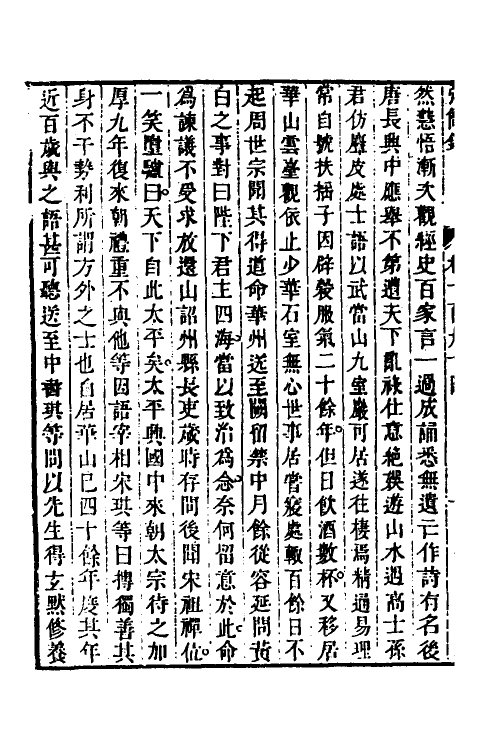 然慧悟漸大觀經史百家言一過成誦悉無遺亡作詩有名後
唐長興中應舉不第遭天下亂祿仕意絕猽遊山水過高士孫
君仿麞皮處士語以武當山九室巖可居遂往棲焉精通易理
常自號扶搖子因辟糓服氣二十餘年但日飲酒數杯又移居
華山雲臺觀依止少華石室無心世事居嘗寢處輙百餘日不
起周世宗聞其得道命華州送至闕留禁中月餘從容延問黃
白之事對曰陛下君主四海當以致治爲念奈何留意於此命
爲諫議不受求放還山詔州縣長吏歲時存問後聞宋祖禪位
一笑墮驢曰天下自此太平矣太平興國中來朝太宗待之加
厚九年復來朝禮重不與他等因語宰相宋琪等曰摶獨善其
身不干勢利所謂方外之士也自居華山已四十餘年度其年
近百歲與之語甚可聽送至中書琪等問以先生得玄默修養